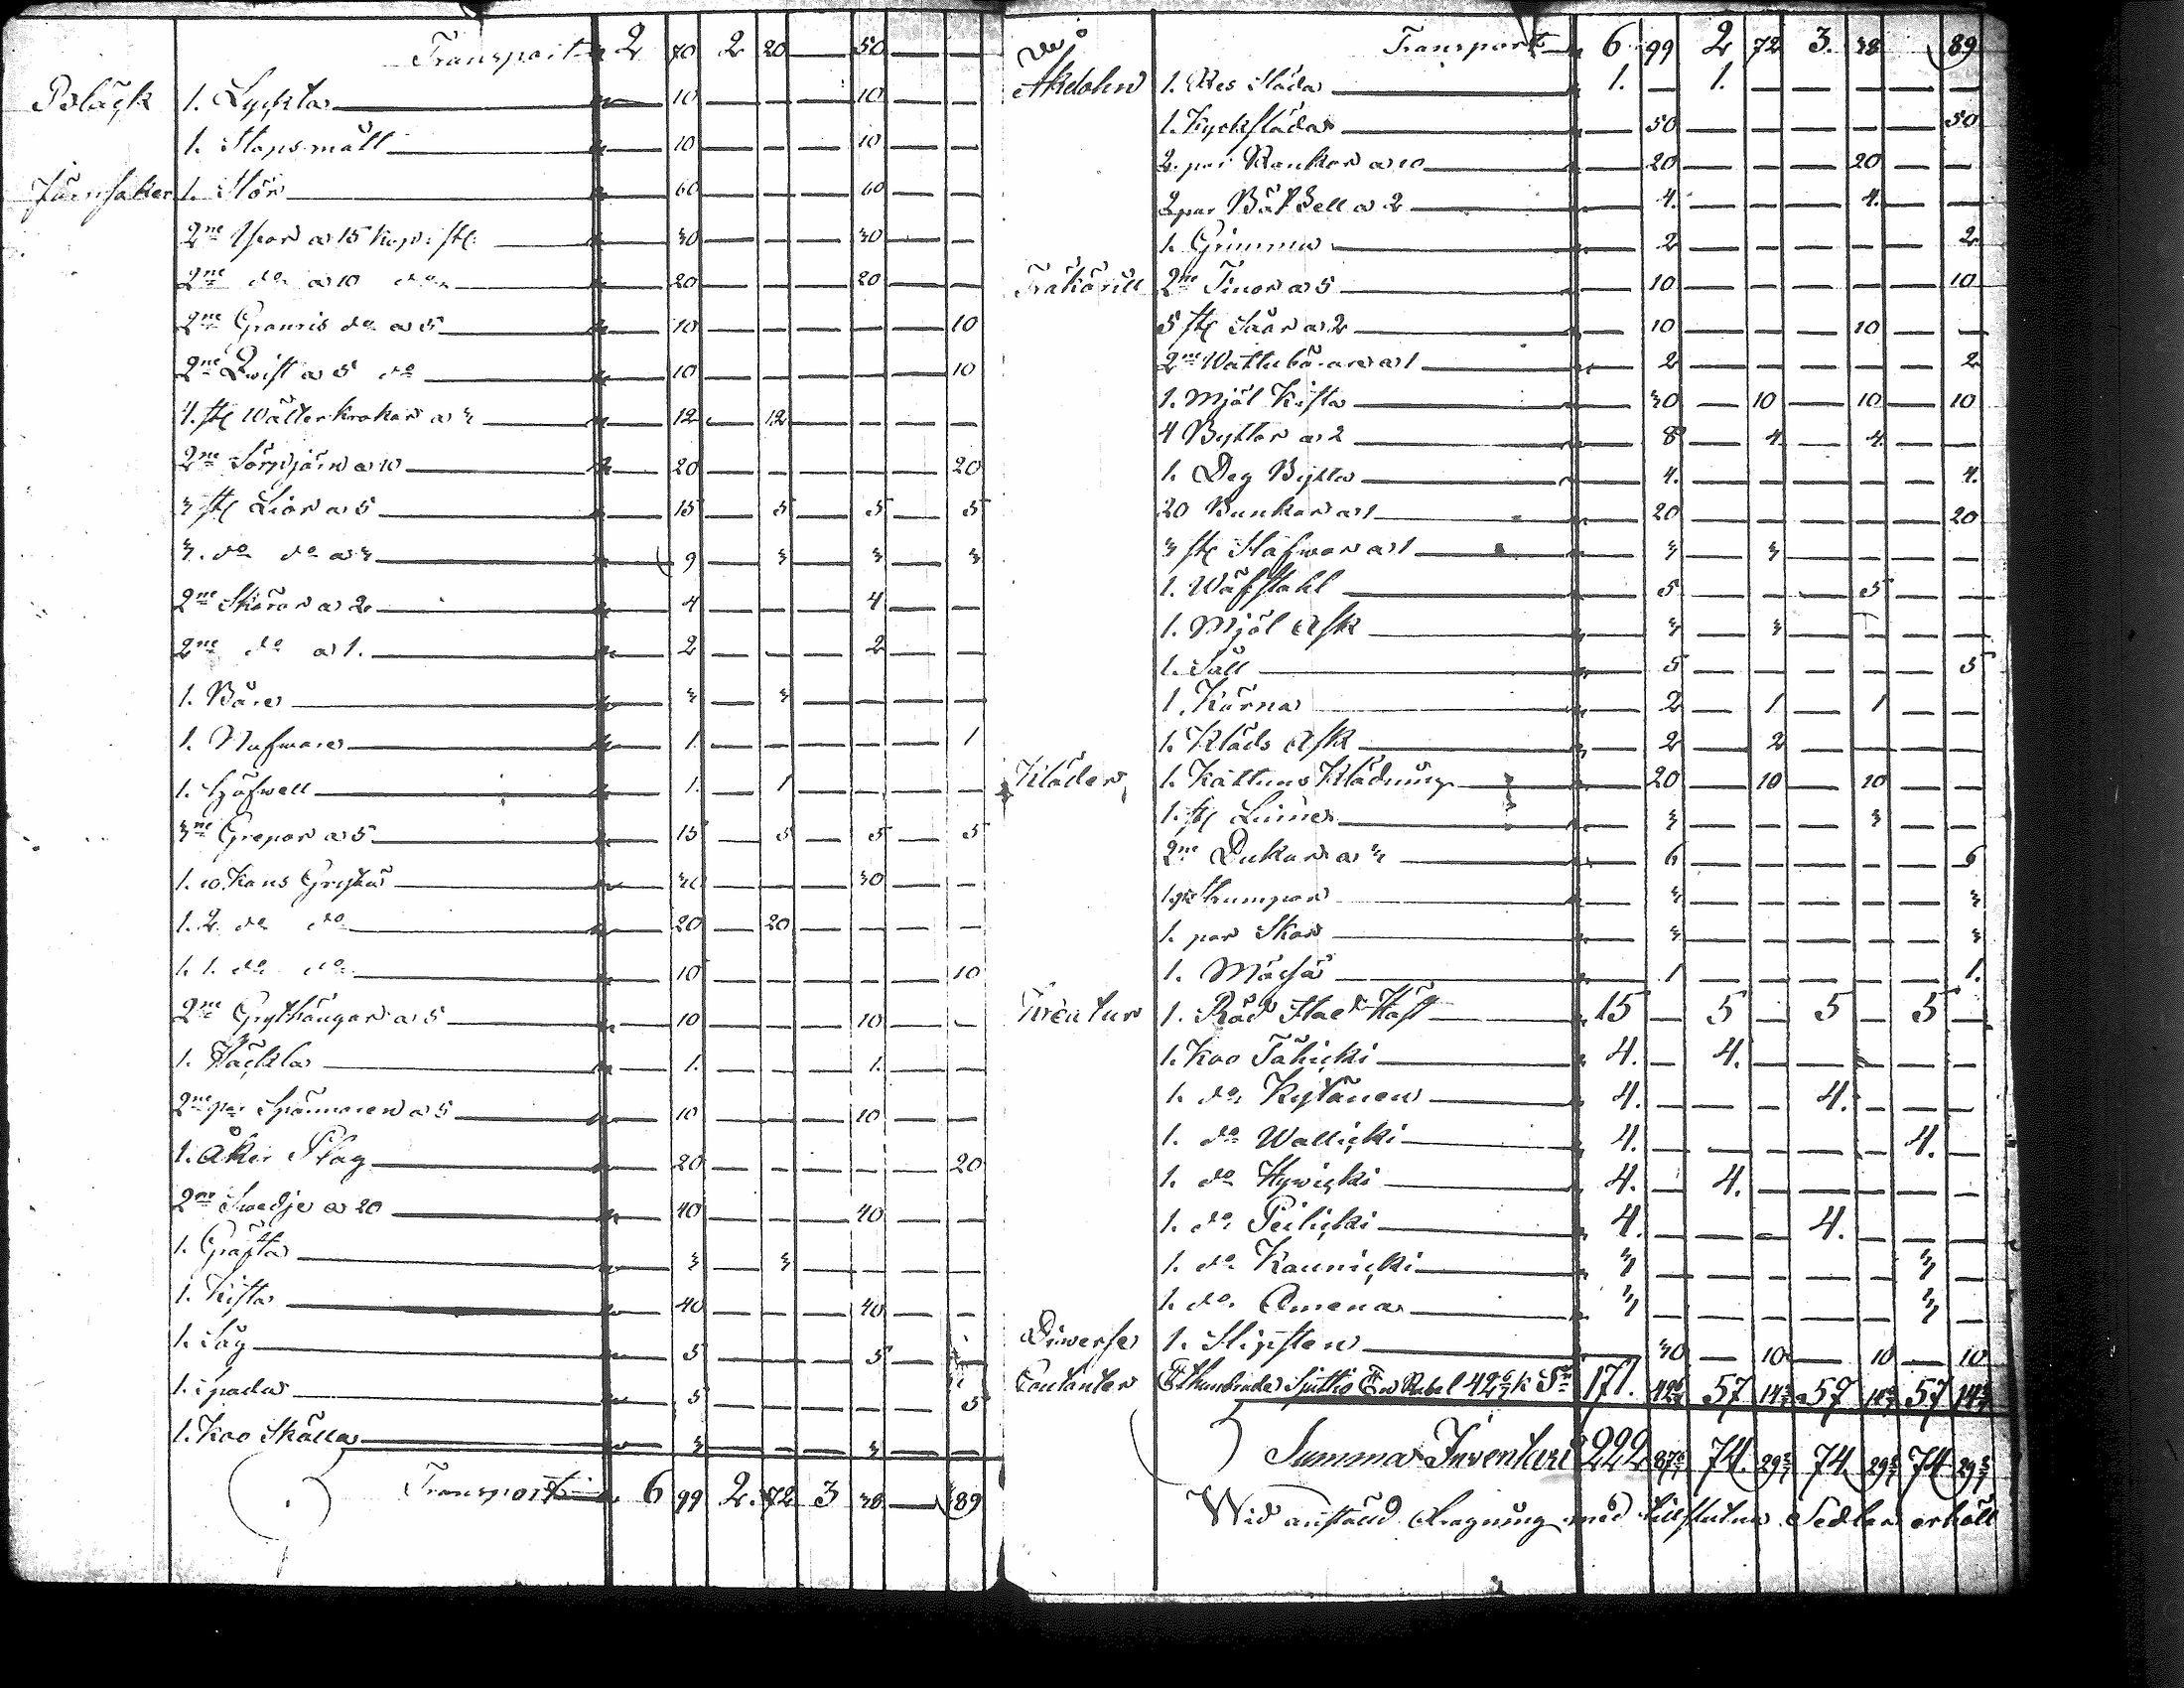 Transport 2 70 2 20 — 50 — —
Bläck 1. Lyckta — 10 — — — 10 — —
1. Stopsmått — 10 — — — 10 — —
Järnsaker 1. Stör — 60 — — — 60 — —
2ne Yxor a 15 kop: st: — 30 — — — 30 — —
2ne do a 10 do — 20 — — — 20 — —
2ne do a 5 — 10 — — — — — 10
2ne a 5 do — 10 — — — — — 10
4. st a 3 — 12 — 12 — — — —
2ne a 10 — 20 — — — — — 20
3 st Liar a 5 — 15 — 5 — 5 — 5
3. do do a 3 — 9 — 3 — 3 — 3
2ne Skäror a 2 — 4 — — — 4 — —
2ne do a 1. — 2 — — — 2 — —
1. — 3 — 3 — — — —
1. Nafware — 1. — — — — — 1
1. Höfwell — 1. — 1 — — — —
3ne Grepar a 5 — 15 — 5 — 5 — 5
1. 10. Kans Gryta — 30 — — — 30 — —
1. 2 do do — 20 — 20 — — — —
1. 1. do do — 10 — — — — — 10
2ne Grythängar a 5 — 10 — — — 10 — —
1. Häckla — 1. — — — 1. — —
2ne par a 5 — 10 — — — 10 — —
1. Åker Plog — 20 — — — — — 20
2ne Swedje a 20 — 40 — — — 40 — —
1. Gräfta — 3 — 3 — — — —
1. Kista — 40 — — — 40 — —
1. Såg — 5 — — — 5 — —
1. spada — 5 — — — — — 5
1. Koo Skälla — 3 — — — 3 — —
Transport 6 99 2. 72 3 38 — 89
Transport 6 99 2 72 3. 38 — 89
Åkdohn 1. Res Släda 1. — 1. — — — — —
1. Kyrksläda — 50 — — — — — 50
2 par a 10 — 20 — — — 20 — —
2 par a 2 — 4. — — — 4. — —
1. Grimma — 2 — — — — — 2
Träkärill 2ne Tinor a 5 — 10 — — — — — 10
5 st Såar a 2 — 10 — — — 10 — —
2ne a 1 — 2 — — — — — 2
1. Mjöl Kista — 30 — 10 — 10 — 10
4 Byttor a 2 — 8 — 4 — 4 — —
1. Deg Bytta — 4. — — — — — 4.
20 Bunkar a 1 — 20 — — — — — 20
3 st Stäfwor a 1 — 3 — 3 — — — —
1. Wäfstohl — 5 — — — 5 — —
1. Mjöl Ask — 3 — 3 — — — —
1. Såll — 5 — — — — — 5
1. Kärna — 2 — 1 — 1 — —
1. Kläds Ask — 2 — 2 — — — —
Kläder 1. Kattuns Klädning — 20 — 10 — 10 — —
1. st Linne — 3 — — — 3 — —
2ne Dukar a 3 — 6 — — — — — 6
1 pr Strumpor — 3 — — — — — 3
1. par Skor — 3 — — — — — 3
1. Mössa — 1 — — — — — 1.
Kreatur 1. Röd Häst 15 — 5 — 5 — 5 —
1. Koo Tähicki 4. — 4. — — — — —
1. do Kytänen 4. — — — 4. — — —
1. do Wallicki 4. — — — — — 4. —
1. do Hywicki 4. — 4. — — — — —
1. do 4. — — — 4. — — —
1. do Kaunicki 3 — — — — — 3 —
1. do Omena 3 — — — — — 3 —
Diwerse 1. Slipsten — 30 — 10 — 10 — 10
Contanter Etthundrade Sjuttio En Rubel 42 6/7 k Sr 171. 42 6/7 57 14 2/7 57 14 2/7 57 14 2/7
Summa Inventarii 222 87 6/7 74. 29 2/7 74. 29 2/7 74 29 2/7
Wid anstäld dragning med tillslutna Sedlar erhöll